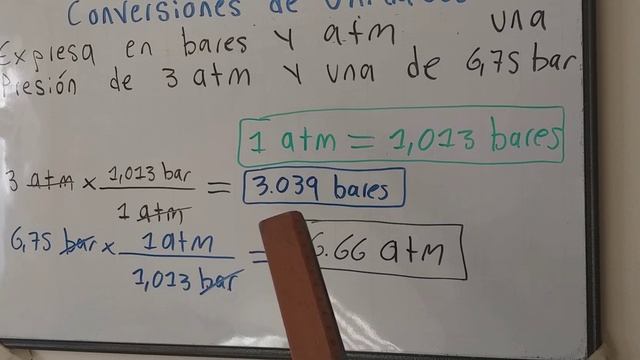 Conversiones de
Expresa en bares y atm una
Presión de 3 atm y una de 6,75 bar
1 atm = 1,013 bares
3 atm x 1,013 bar / 1 atm = 3.039 bares
6,75 bar x 1 atm / 1,013 bar = 6.66 atm